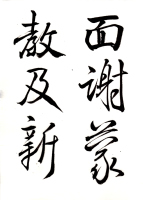 面谢蒙
教及新